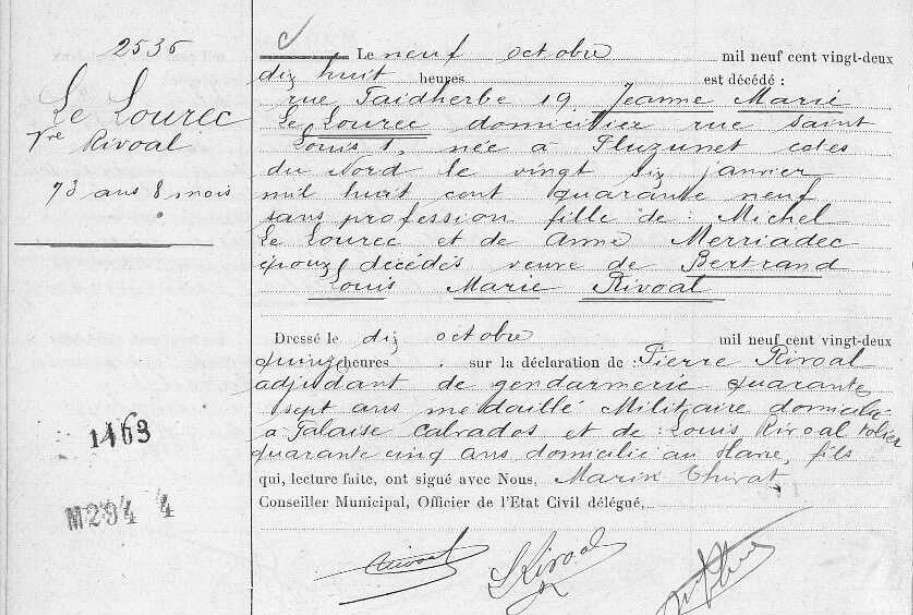 2536
Le Lourec
Vve
Rivoal
73 ans 8 mois
1463
M294 4
Le neuf octobre mil neuf cent vingt-deux
dix huit heures est décédé :
rue Faidherbe 19 Jeanne Marie
Le Lourec domiciliée rue Saint
Louis 1, née à Pluzunet cotes
du Nord le vingt six janvier
mil huit cent quarante neuf
sans profession fille de : Michel
Le Lourec et de Anne Merriadec
époux décédés veuve de Bertrand
Louis Marie Rivoal
Dressé le dix octobre mil neuf cent vingt-deux
quinze heures . sur la déclaration de : Pierre Rivoal
adjudant de gendarmerie quarante
sept ans médaillé Militaire domicilié
à Falaise Calvados et de : Louis Rivoal tolier
quarante cinq ans domicilié au Havre, fils
qui, lecture faite, ont signé avec Nous, Marin
Conseiller Municipal, Officier de l'Etat Civil délégué.
Rivoal
L Rivoal